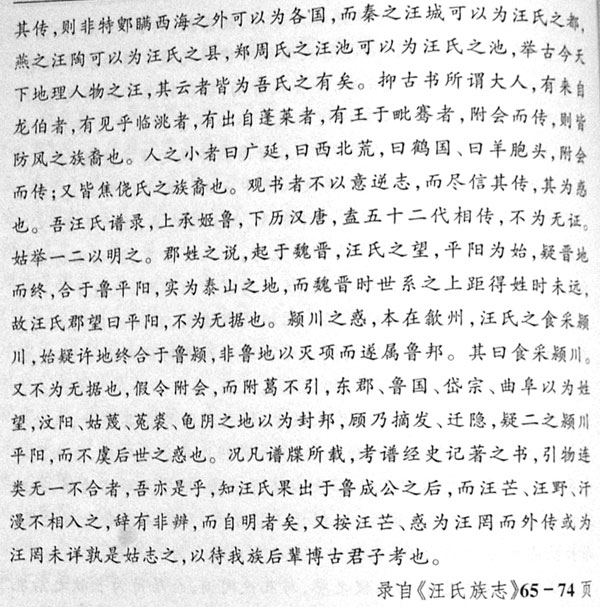 其传，则非特鄋瞒西海之外可以为各国，而秦之汪城可以为汪氏之都，
燕之汪陶可以为汪氏之县，郑周氏之汪池可以为汪氏之池，举古今天
下地理人物之汪，其云者皆为吾氏之有矣。抑古书所谓大人，有来自
龙伯者，有见乎临洮者，有出自蓬莱者，有王于毗骞者，附会而传，则皆
防风之族裔也。人之小者曰广延，曰西北荒，曰鹤国、曰羊胞头，附会
而传；又皆焦侥氏之族裔也。观书者不以意逆志，而尽信其传，其为惑
也。吾汪氏谱录，上承姬鲁，下历汉唐，盍五十二代相传，不为无证。
姑举一二以明之。郡姓之说，起于魏晋，汪氏之望，平阳为始，疑晋地
而终，合于鲁平阳，实为泰山之地，而魏晋时世系之上距得姓时未远，
故汪氏郡望曰平阳，不为无据也。颍川之惑，本在歙州，汪氏之食采颍
川，始疑许地终合于鲁颍，非鲁地以灭项而遂属鲁邦。其曰食采颍川。
又不为无据也，假令附会，而附葛不引，东郡、鲁国、岱宗、曲阜以为姓
望，汶阳、姑蔑、菟裘、龟阴之地以为封邦，顾乃摘发、迁隐，疑二之颍川
平阳，而不虞后世之惑也。况凡谱牒所载，考谱经史记著之书，引物连
类无一不合者，吾亦是乎，知汪氏果出于鲁成公之后，而汪芒、汪野、汗
漫不相入之，辞有非辨，而自明者矣，又按汪芒、惑为汪罔而外传或为
汪罔未详孰是姑志之，以待我族后辈博古君子考也。
录自《汪氏族志》65－74页